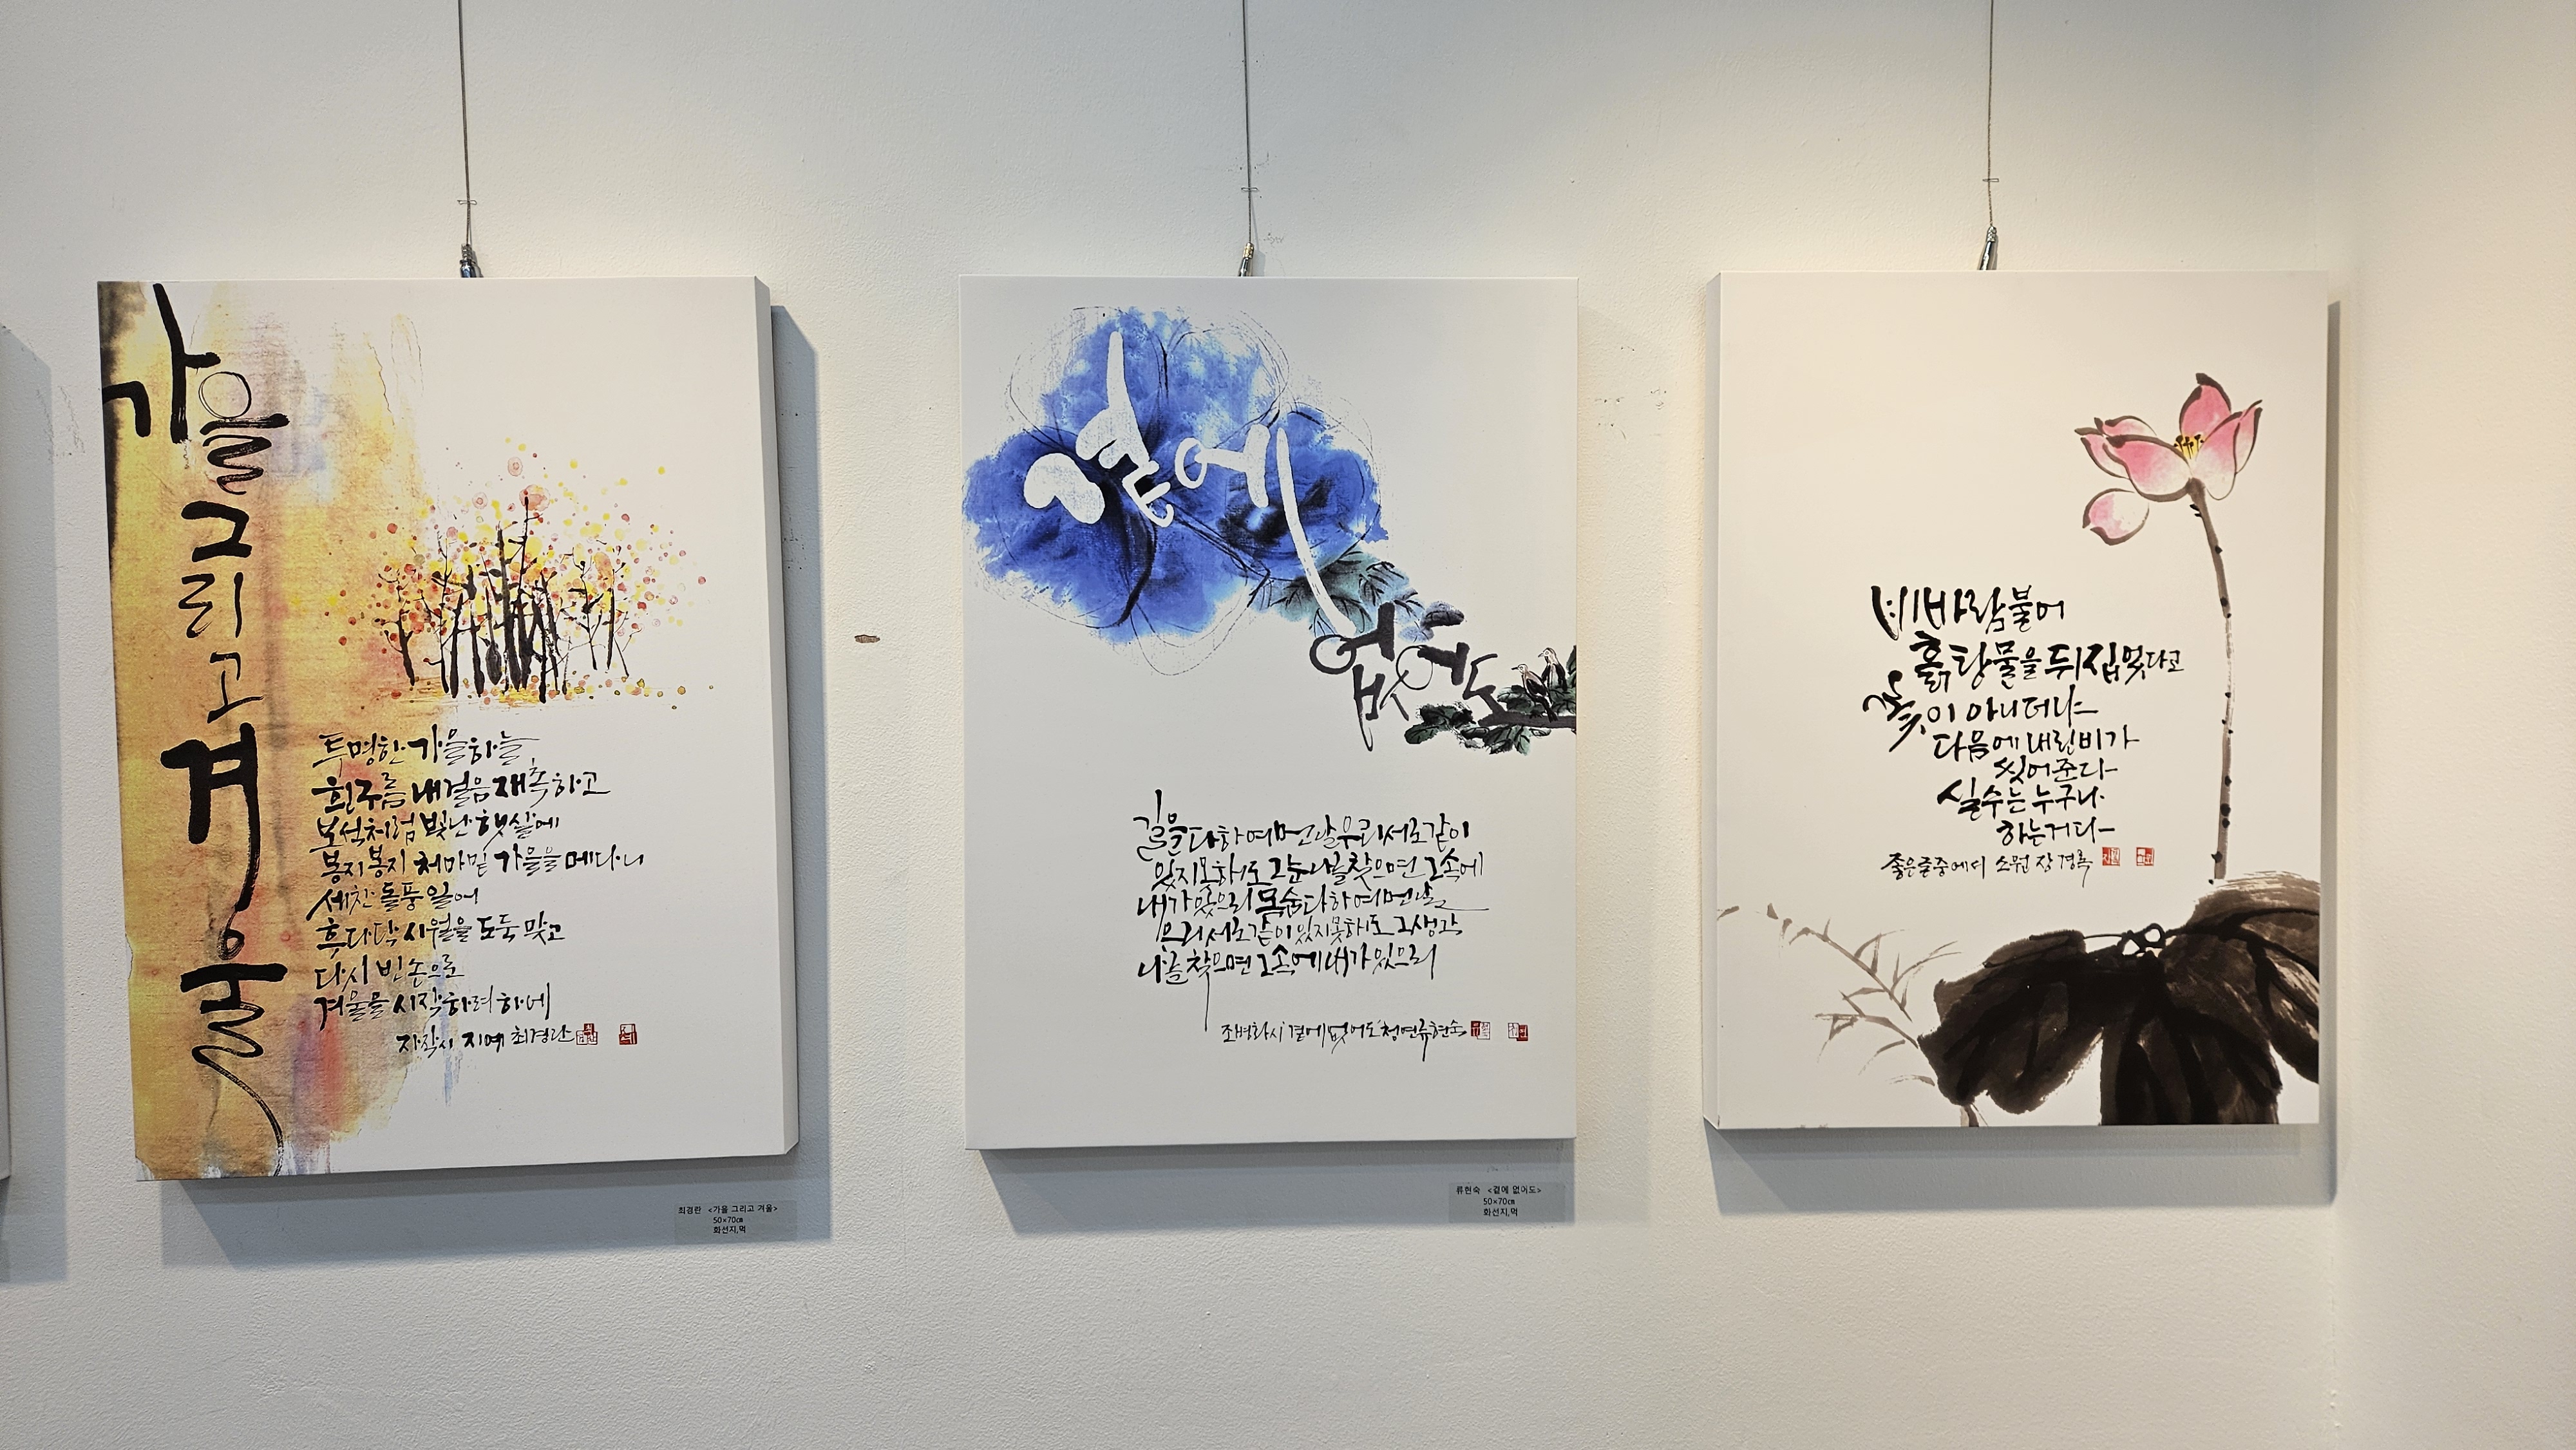 가을
그리고
겨울
투명한 가을하늘
흰구름 내걸음 재촉하고
보석처럼 빛난 햇살에
봉지봉지 처마밑 가을을 메다니
세찬 돌풍 일어
후다닥 시월을 도둑 맞고
다시 빈손으로
겨울을 시작하려 하네
자작시 지예 최경란
최경란 <가을 그리고 겨울>
50×70㎝
화선지,먹
곁에
없어도
길을 다하여 먼 날 우리 서로 같이
있지 못해도 그 눈 나를 찾으면 그 속에
내가 있으리 목숨 다하여 먼 날
우리 서로 같이 있지 못해도 그 생각
나를 찾으면 그 속에 내가 있으리
조병화 시 '곁에 없어도' 청연 류현숙
류현숙 <곁에 없어도>
50×70㎝
화선지,먹
비바람 불어
흙탕물을 뒤집 었다고
꽃이 아니더냐
다음에 내린 비가
씻어준다
실수는 누구나
하는거다
좋은글중에서 소원 장경록